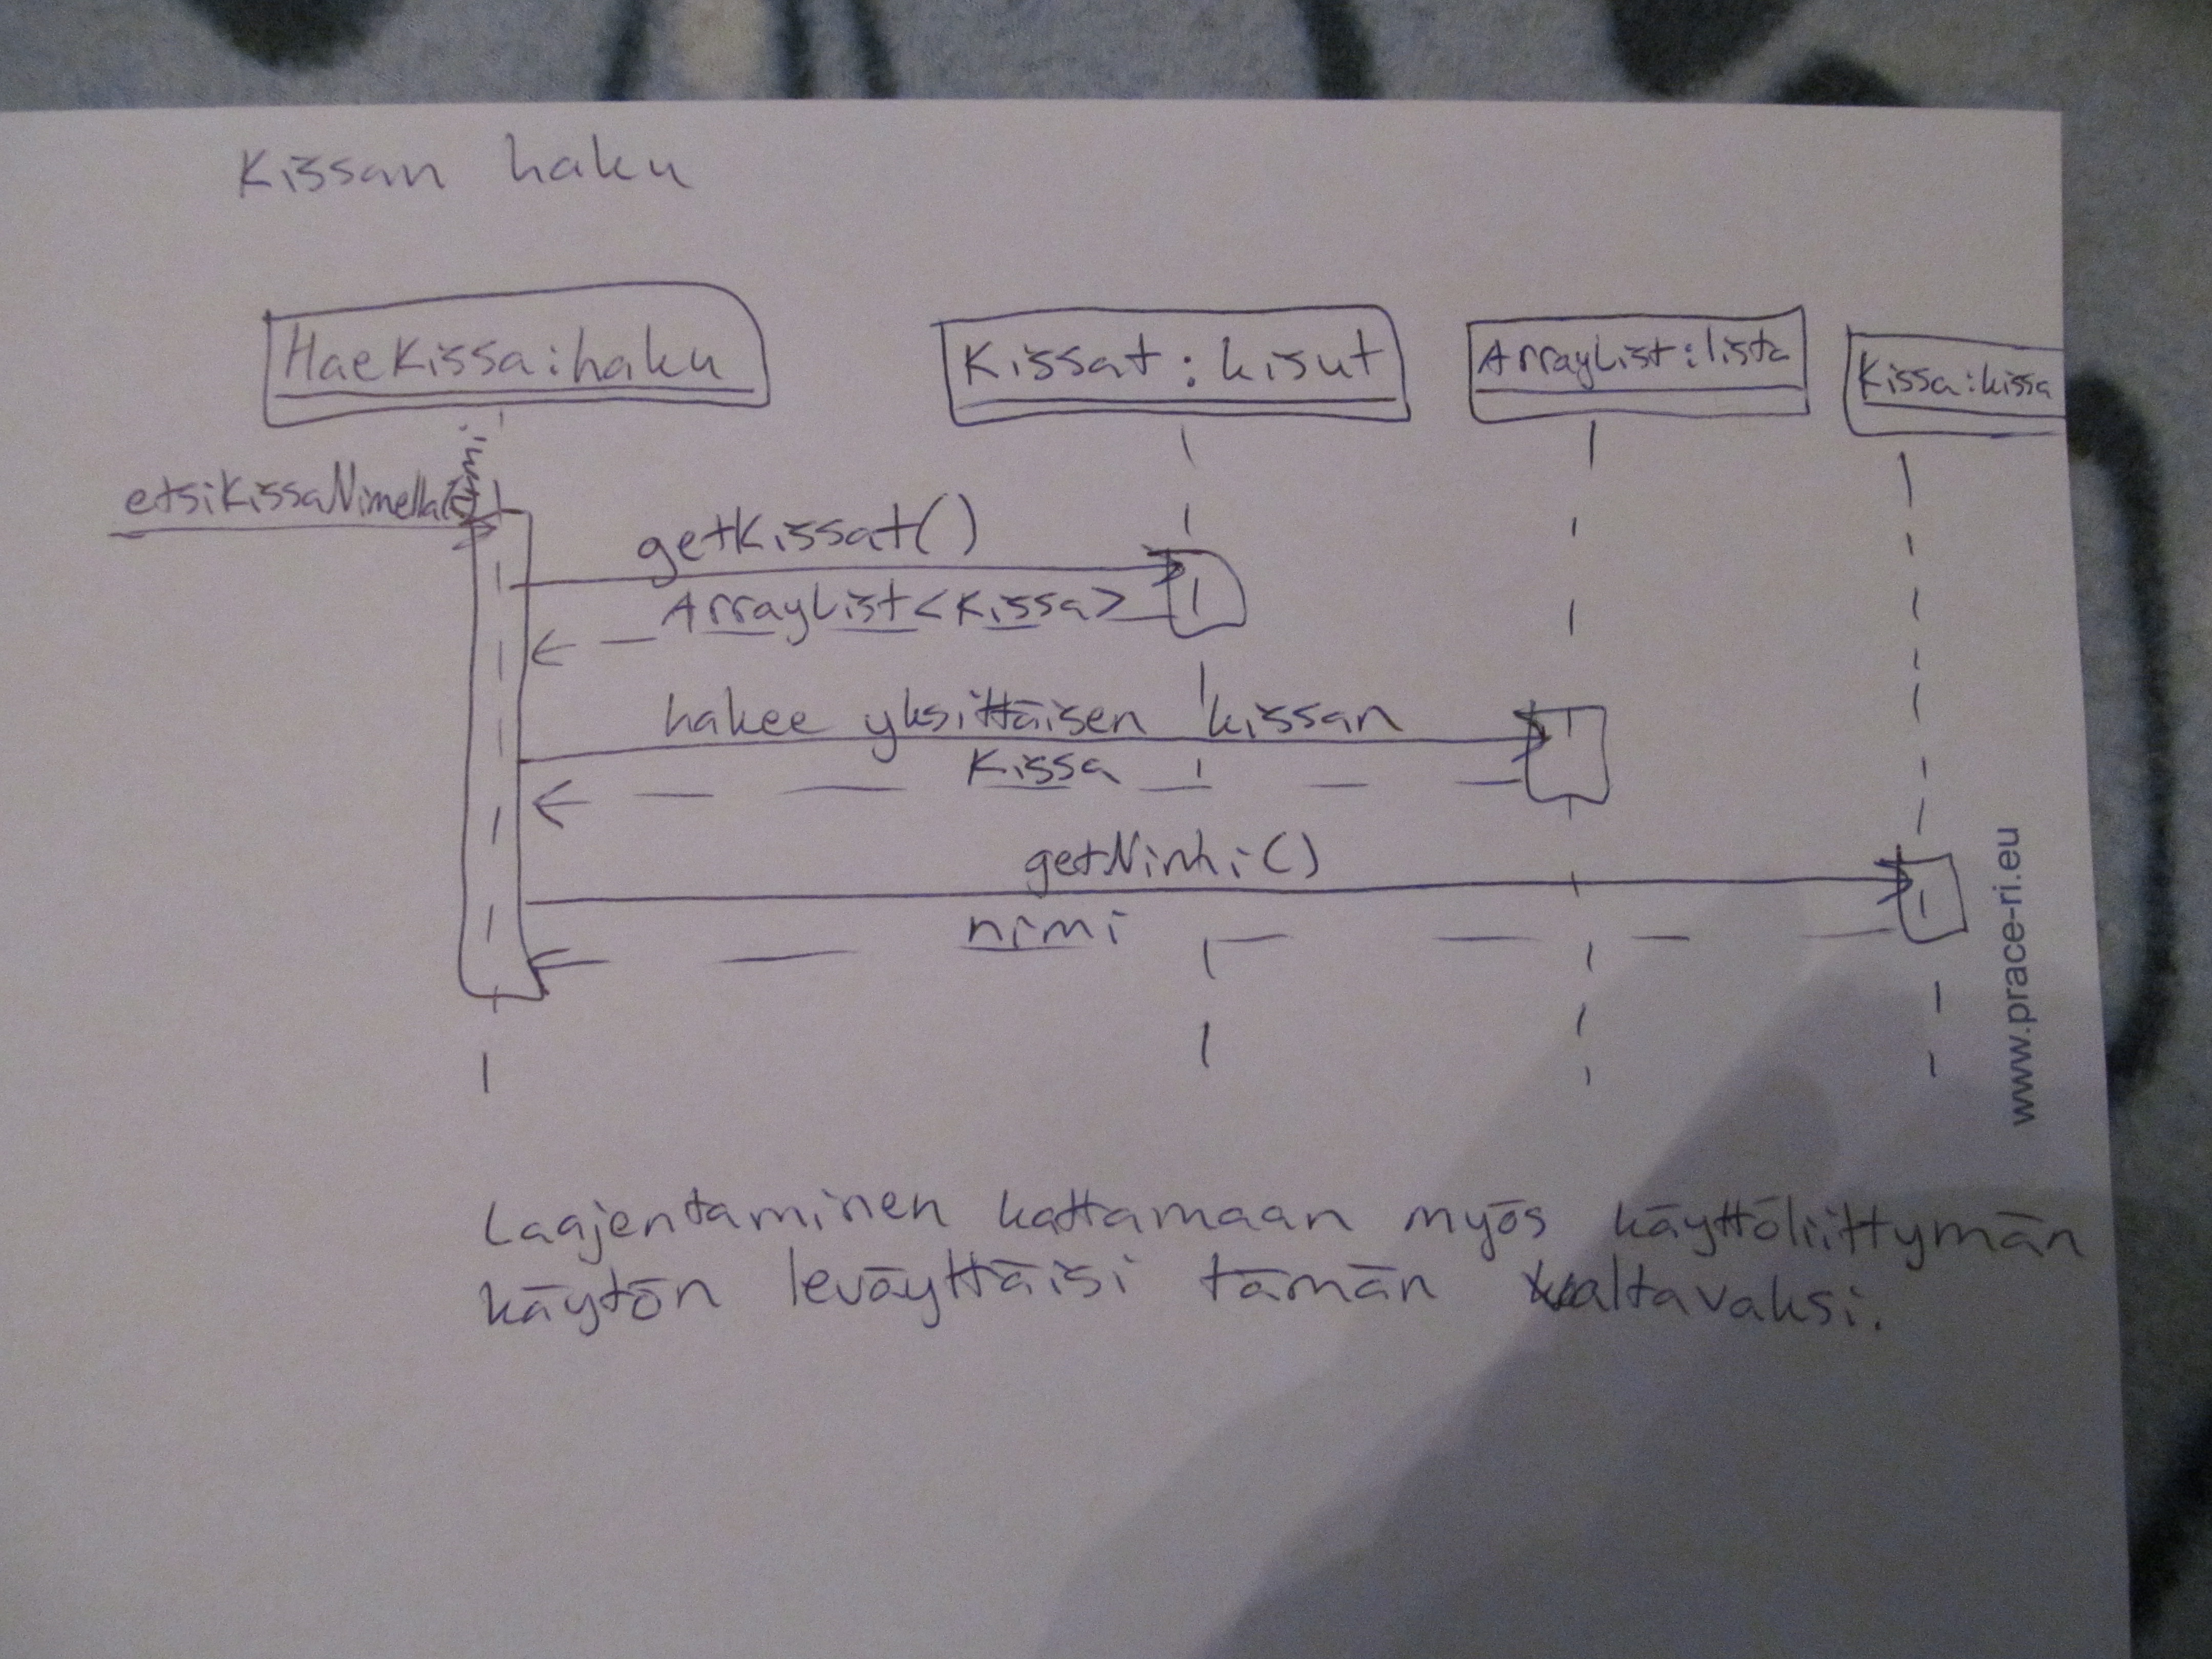 Kissan haku
HaeKissa:haku
Kissat:kisut
ArrayList:lista
Kissa:kissa
etsiKissaNimella(
getKissat()
ArrayList<Kissa>
hakee yksittäisen kissan
Kissa
getNimi()
nimi
www.prace-ri.eu
Laajentaminen kattamaan myös käyttöliittymän
käytön leväyttäisi tämän valtavaksi.